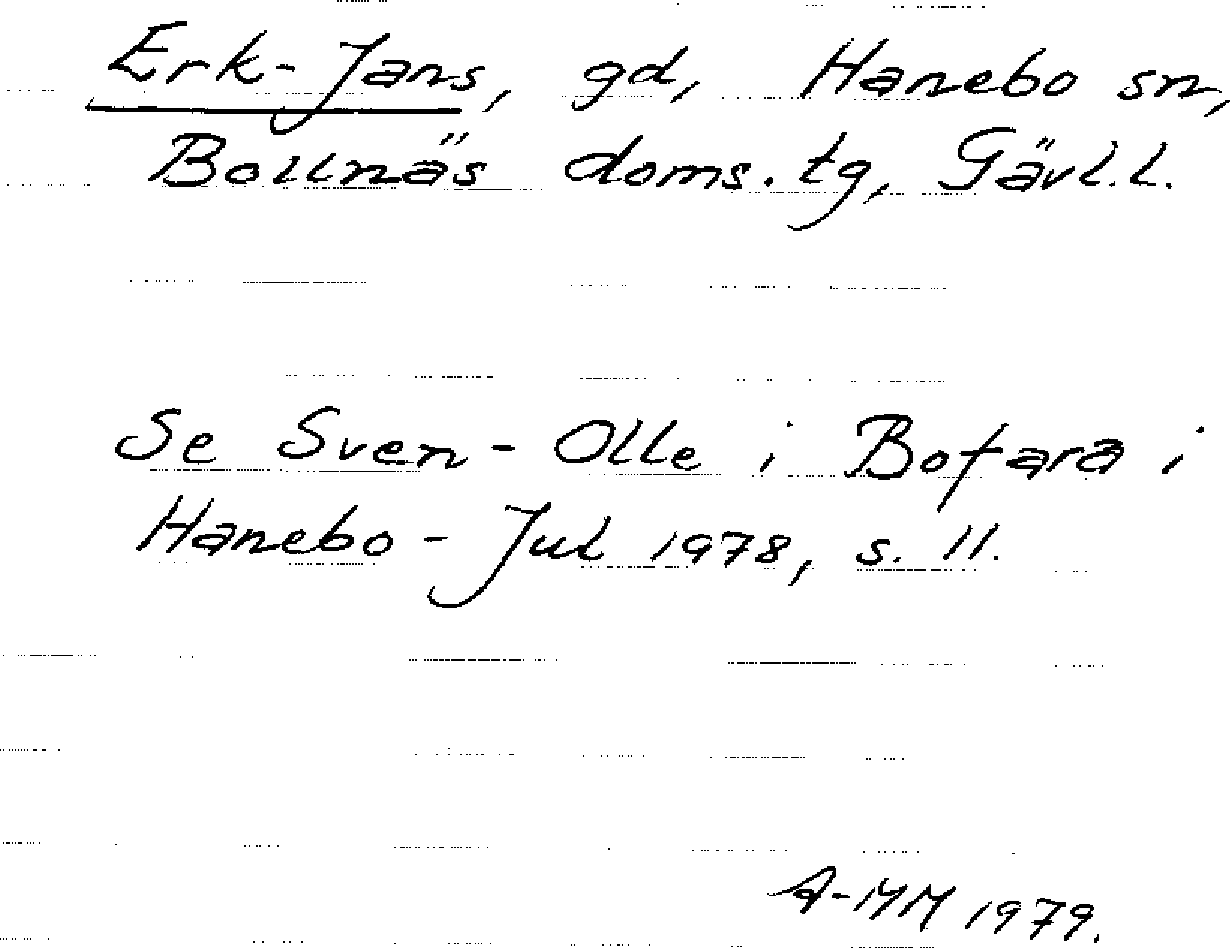 Erk-Jans, gd, Hanebo sn,
Bollnäs doms.tg, Gävl.l.
Se Sven-Olle i Bofara i
Hanebo - Jul 1978, s. 11.
A-MM 1979.